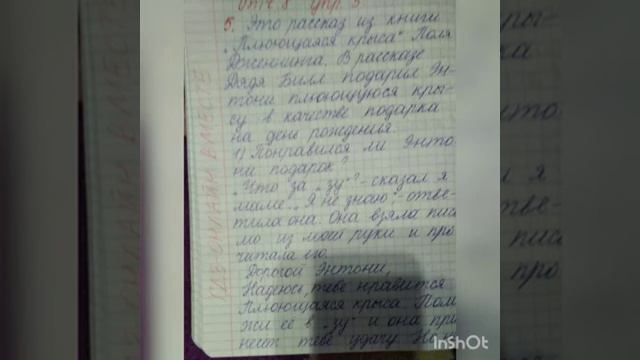 5. Это рассказ из книги
„Плюющаяся крыса" Поля
Дженнинга. В рассказе
Дядя Билл подарил Эн-
тони плюющуюся кры-
су в качестве подарка
на день рождения.
1) Понравился ли Энто-
ни подарок?
„Что за „зу"? - сказал я
маме. „Я не знаю", - отве-
тила она. Она взяла пись
мо из моей руки и про
читала его.
Дорогой Энтони,
Надеюсь, тебе нравится
Плюющаяся крыса. Поло
жи её в „зу" и она при
несёт тебе удачу.
InShOt